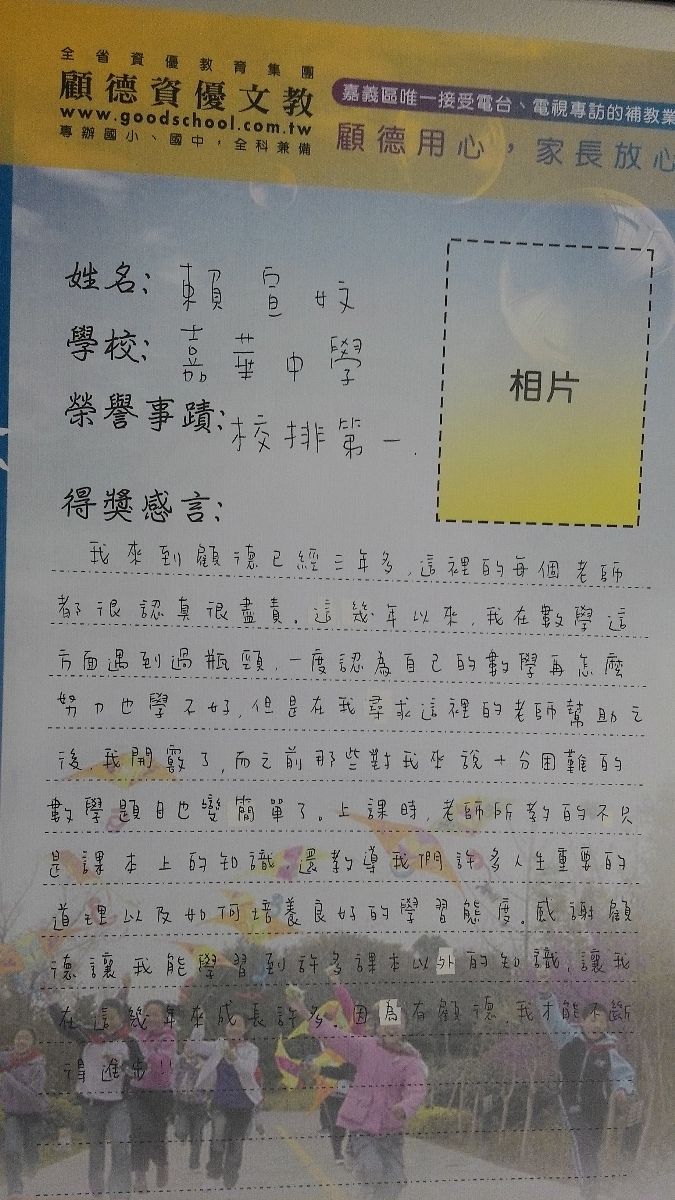 全省資優教育集團
顧德資優文教
www.goodschool.com.tw
專辦國小、國中，全科兼備
嘉義區唯一接受電台、電視專訪的補教業
顧德用心，家長放心
姓名: 賴宣妏
學校: 嘉華中學
榮譽事蹟: 校排第一.
相片
得獎感言:
我來到顧德已經三年多,這裡的每個老師
都很認真很盡責。這幾年以來,我在數學這
方面遇到過瓶頸,一度認為自己的數學再怎麼
努力也學不好,但是在我尋求這裡的老師幫助之
後,我開竅了,而之前那些對我來說十分困難的
數學題目也變簡單了。上課時,老師所教的不只
是課本上的知識,還教導我們許多人生重要的
道理以及如何培養良好的學習態度。感謝顧
德讓我能學習到許多課本以外的知識,讓我
在這幾年來成長許多。因為有顧德,我才能不斷
得進步!!